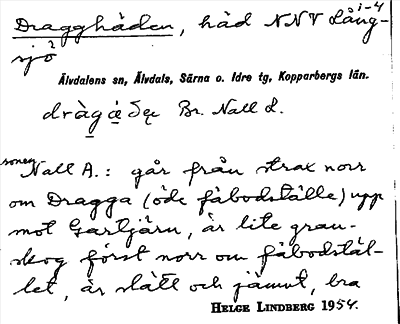 Dragghåden, håd NNV Lång- 1-4
sjö 2
Älvdalens sn, Älvdals, Särna o. Idre tg, Kopparbergs län.
Br. Nall L.
sonen
Nall A.: går från strax norr
om Dragga (öde fäbodställe) upp
mot Gartjärn, är lite gran-
skog först norr om fäbodstäl-
let, är slätt och jämnt, bra
HELGE LINDBERG 1954.